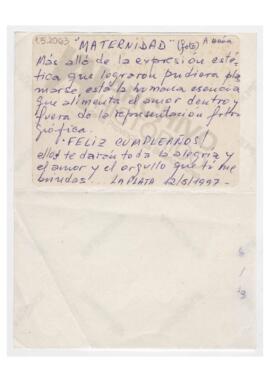 1.5.2003
"MATERNIDAD" (foto) A MAMÁ
Más allá de la expresión esté-
tica que lograron pudiera pla
marse, está la humana esencia
que alimenta el amor dentro y
fuera de la representación foto
gráfica.
¡FELIZ CUMPLEAÑOS!
ellos te darán toda la alegría y
el amor y el orgullo que tú me
brindas... LA PLATA 12/5/1997